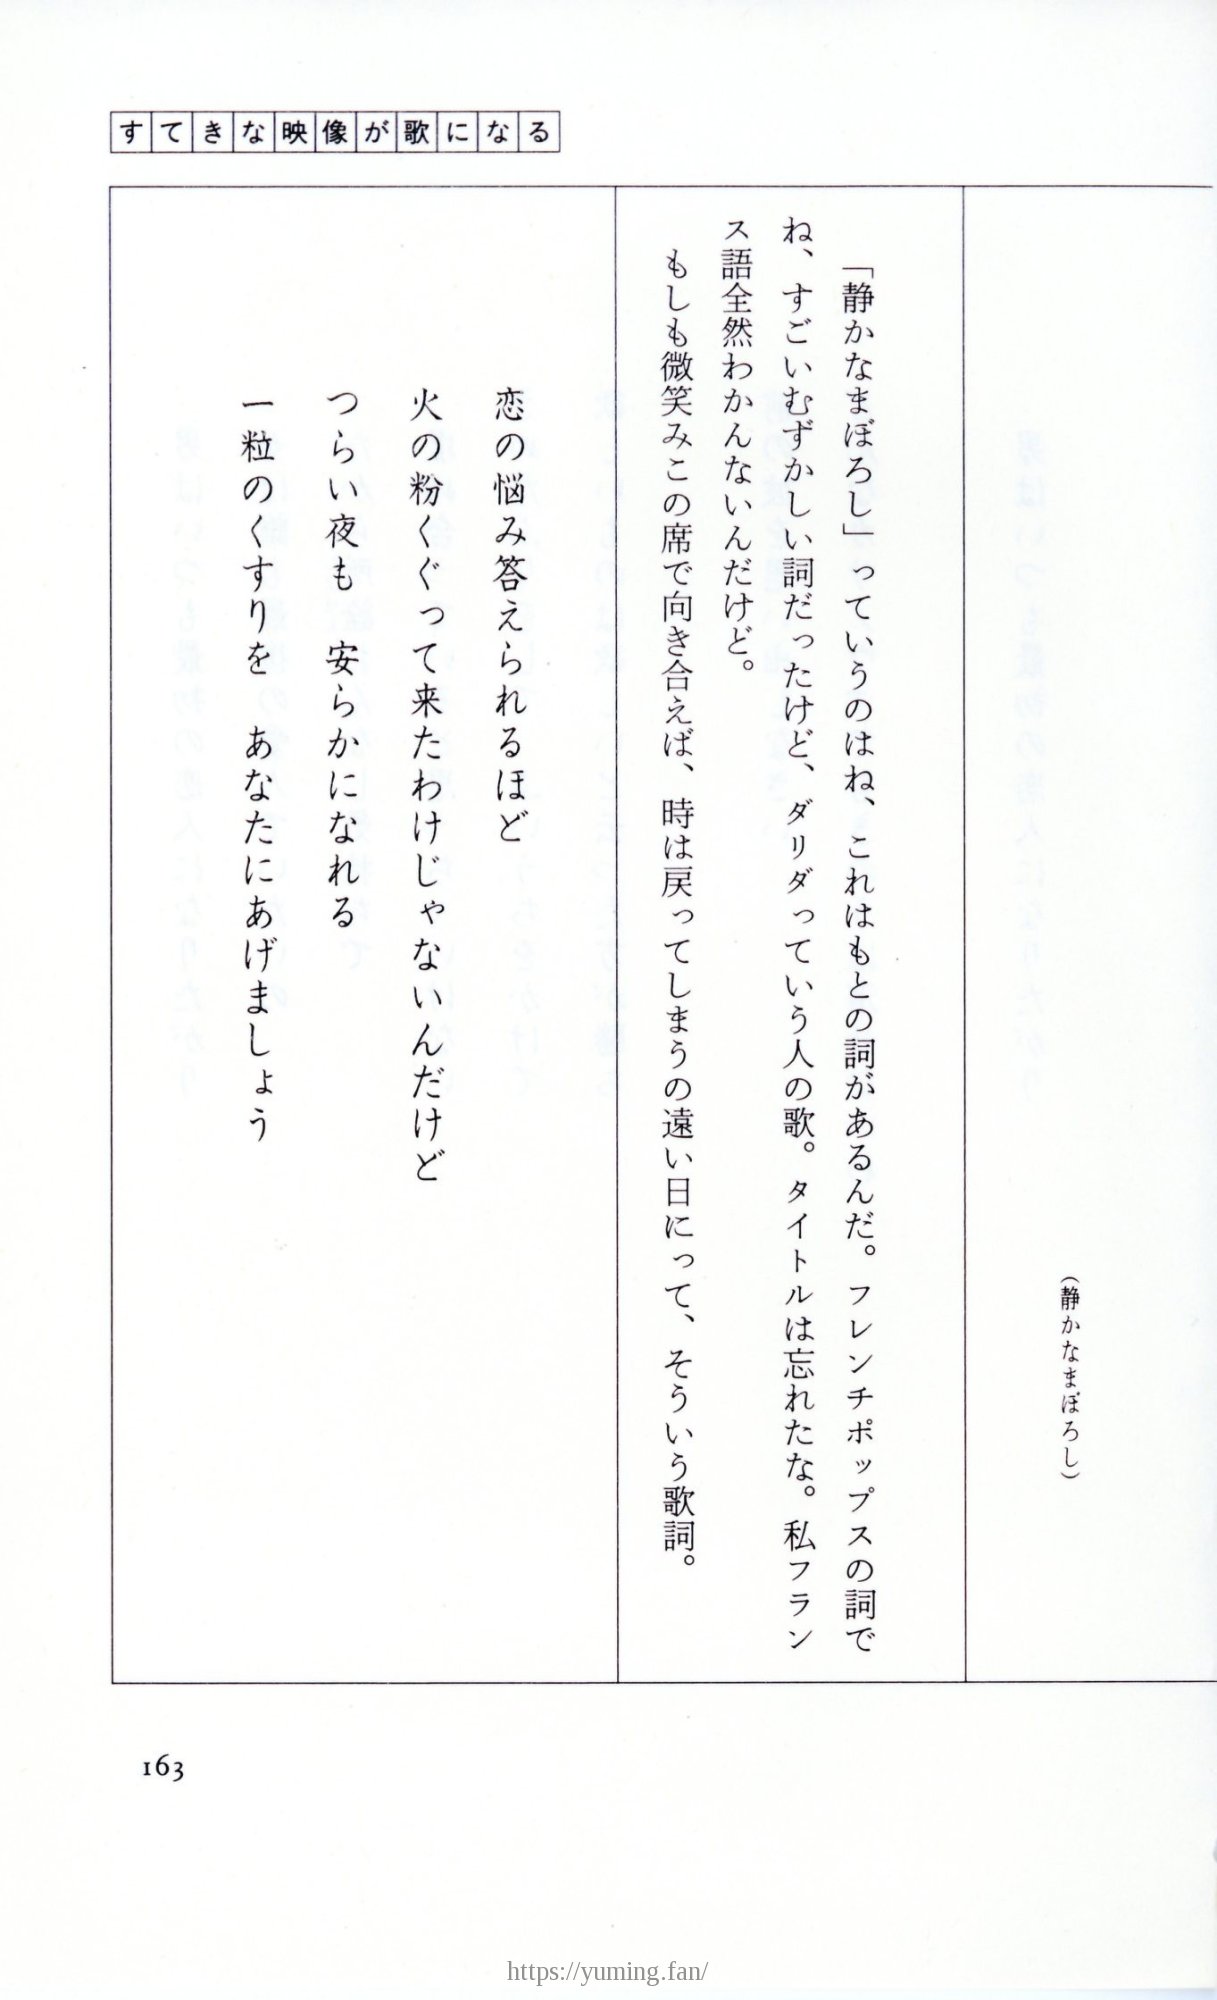 すてきな映像が歌になる
(静かなまぼろし)
「静かなまぼろし」っていうのはね、これはもとの詞があるんだ。フレンチポップスの詞で
ね、すごいむずかしい詞だったけど、ダリダっていう人の歌。タイトルは忘れたな。私フラン
ス語全然わかんないんだけど。
もしも微笑みこの席で向き合えば、時は戻ってしまうの遠い日にって、そういう歌詞。
恋の悩み答えられるほど
火の粉くぐって来たわけじゃないんだけど
つらい夜も 安らかになれる
一粒のくすりを あなたにあげましょう
163
https://yuming.fan/